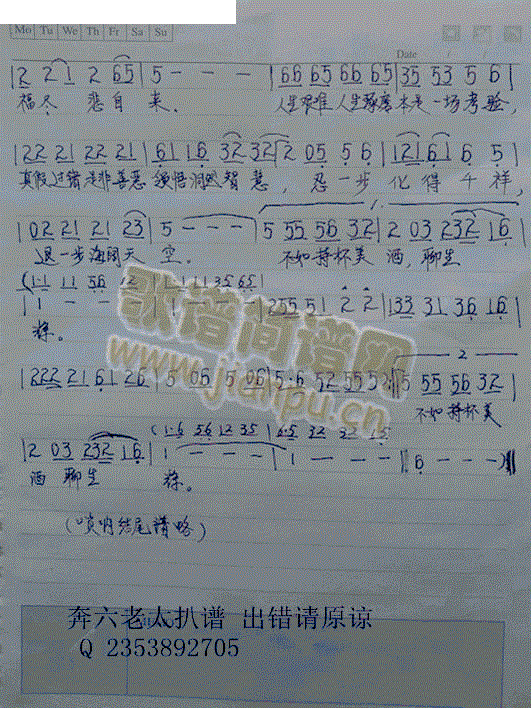 Mo Tu We Th Fr Sa Su
Date / /
|2 2 1 2 65|5 - - -|66 65 66 65|35 53 5 6|
福尽 悲自来. 人生艰难 人生琢磨 本是一场考验,
|22 21 22 21|61 16 32 32|2 05 5 6|121 61 6 5|
真假过错 是非善恶 领悟洞然智慧, 忍一步 化得千祥,
|02 21 21 23|5 - - -|5 55 56 32|2 03 232 16|
退一步 海阔天 空. 不如持杯美 酒, 聊生
|1 - - -|1 - - -|255 51 2 2|133 31 36 16|
释.
|222 21 6 26|5 06 5 06|5·6 52 55 52|5 55 56 32|
2
不如持杯美
|2 03 232 16|1 - - -|1 - - -|6 - - -|
酒 聊生 释.
(唢呐结尾谱略)
歌谱简谱网
www.jianpu.cn
奔六老人扒谱 出错请原谅
Q 2353892705